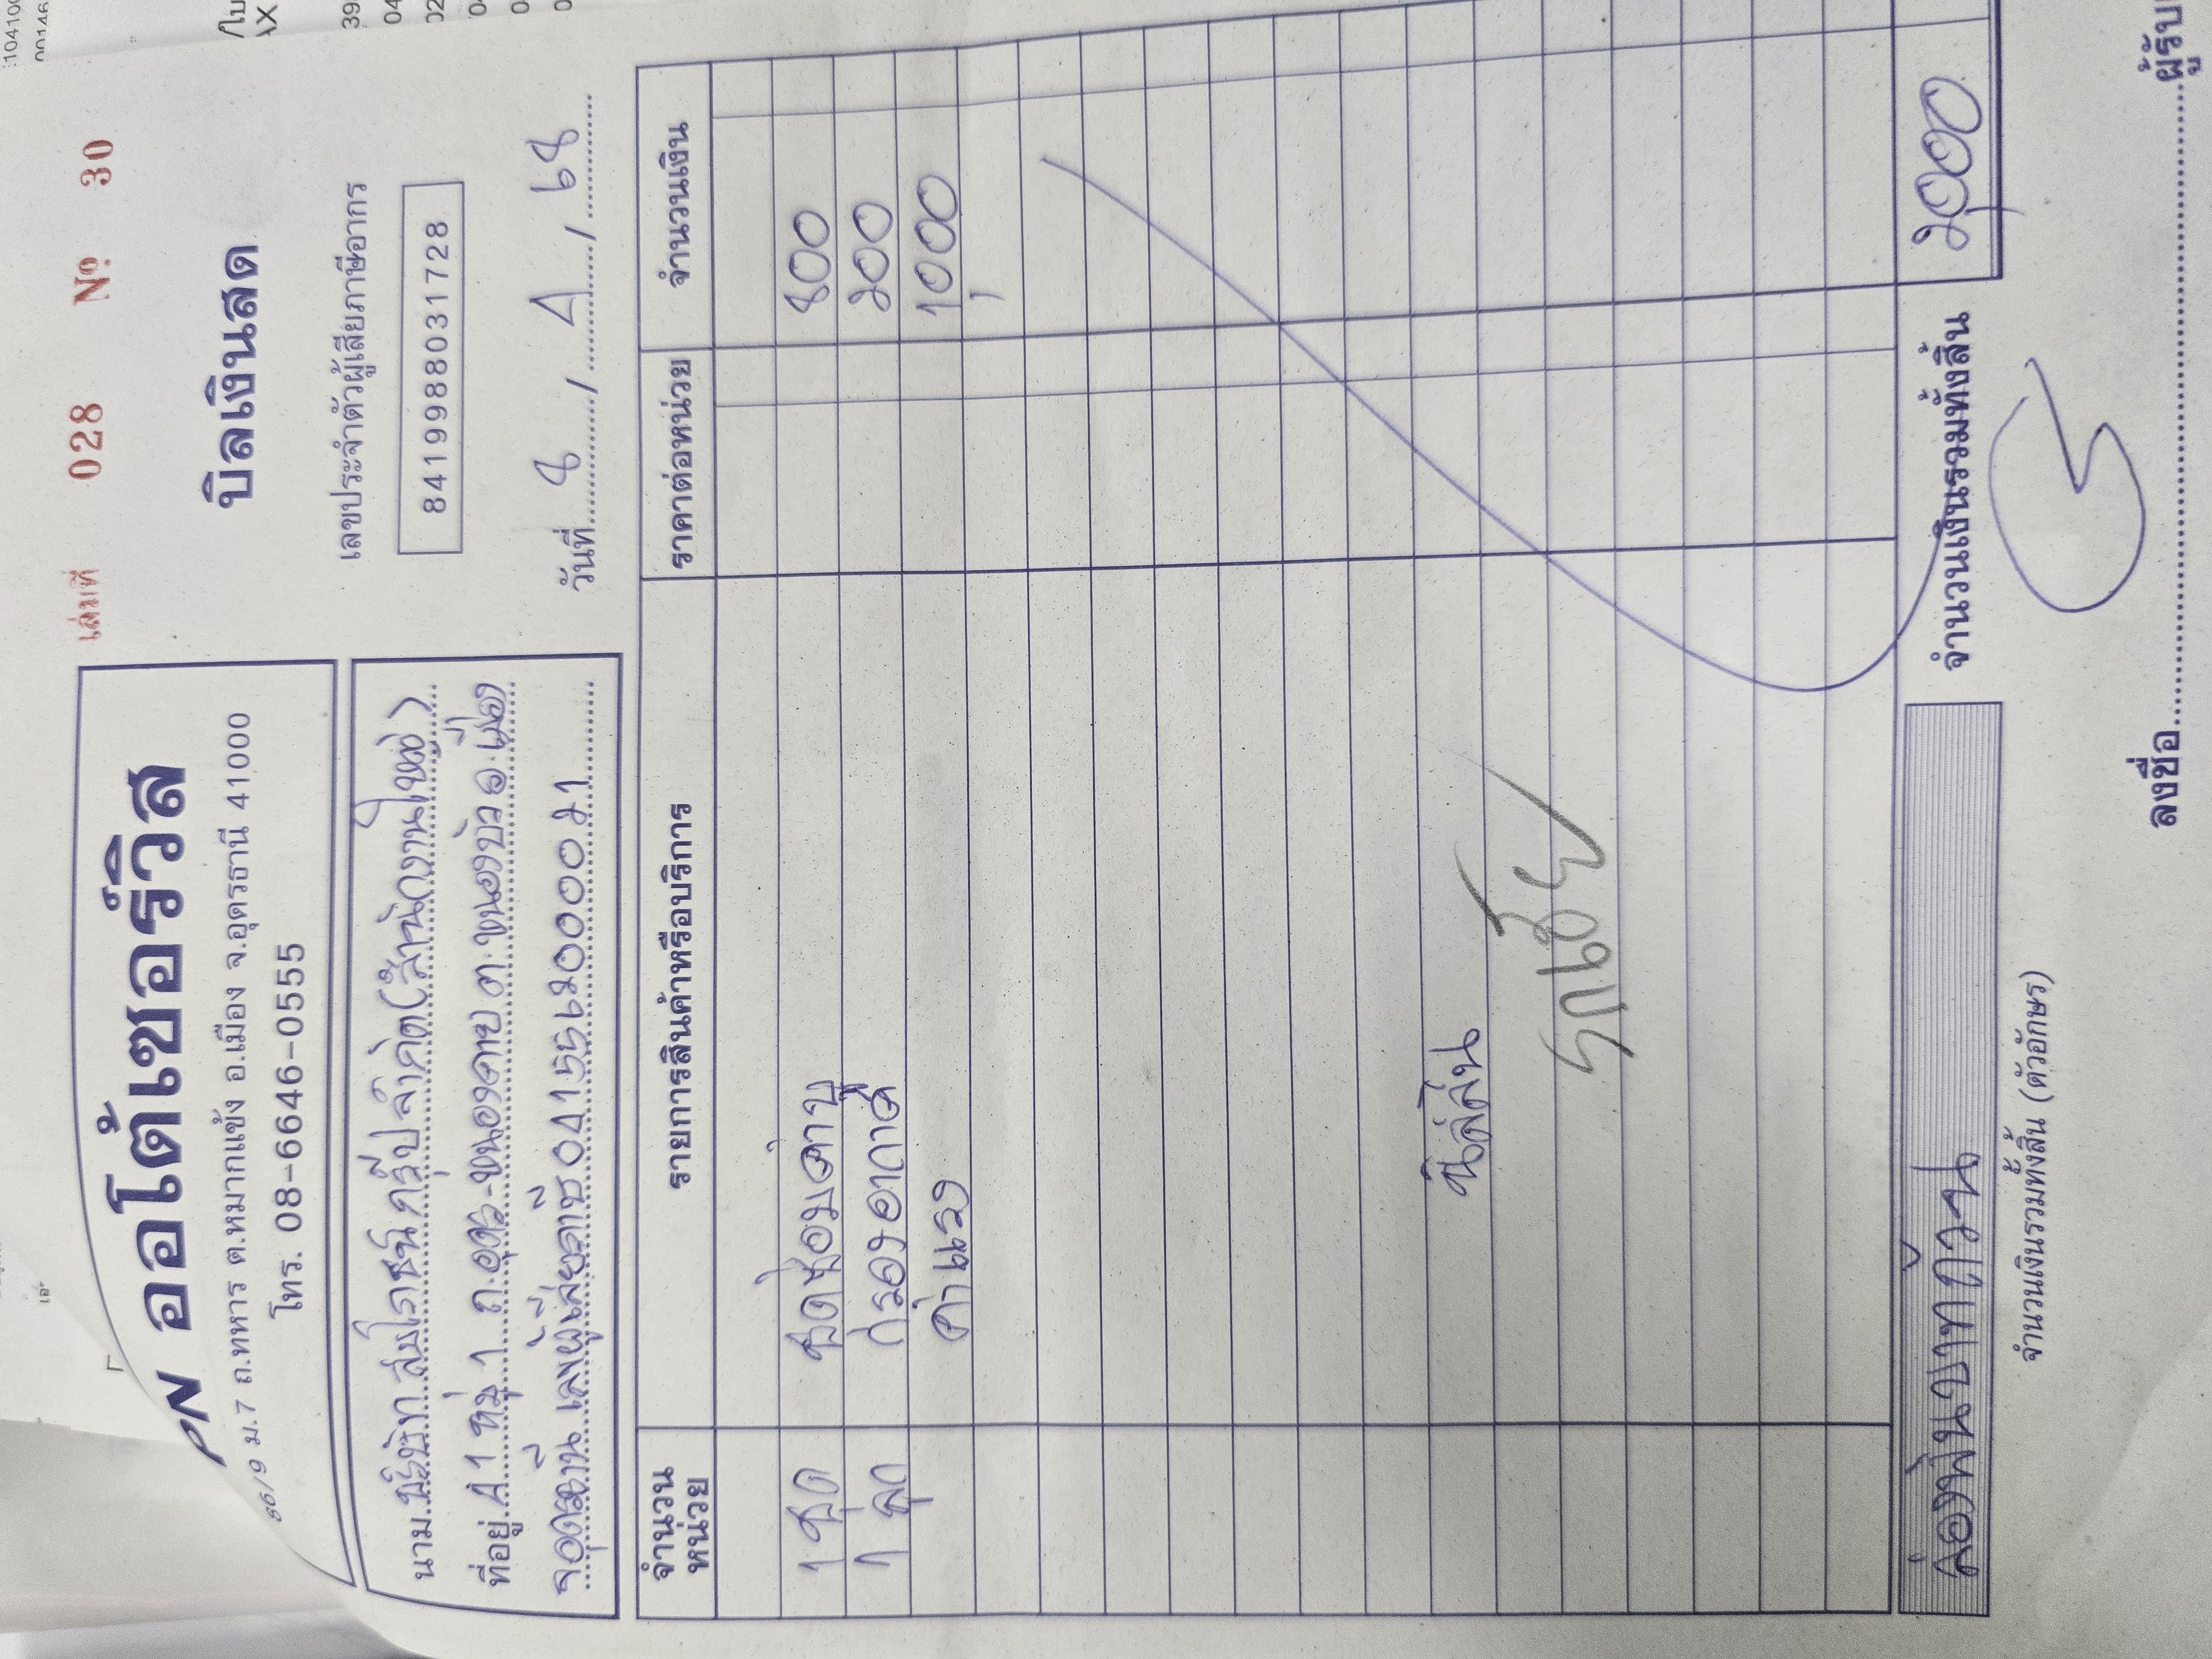 เล่มที่ 028 № 30
PN ออโต้เซอร์วิส
/9 ม.7 ถ.ทหาร ต.หมากแข้ง อ.เมือง จ.อุดรธานี 41000
โทร. 08-6646-0555
บิลเงินสด
เลขประจำตัวผู้เสียภาษีอากร
8419988031728
นาม บริษัท สบโภชน์ กรุ๊ป จำกัด (สำนักงานใหญ่)
ที่อยู่ 41 หมู่ 1 ถ.อุดร-หนองคาย ต.หนองบัว อ.เมือง
จ.อุดรธานี เลขผู้เสียภาษี
วันที่ 8 / 4 / 68
จำนวนหน่วย รายการสินค้าหรือบริการ ราคาต่อหน่วย จำนวนเงิน
1 ชุด ชุดซ่อม 800
1 ลูก กรองอากาศ 200
ค่าแรง 1000
รถเชฟ
สองพันบาทถ้วน จำนวนเงินรวมทั้งสิ้น 2,000
จำนวนเงินรวมทั้งสิ้น (ตัวอักษร)
ลงชื่อ ผู้รับ